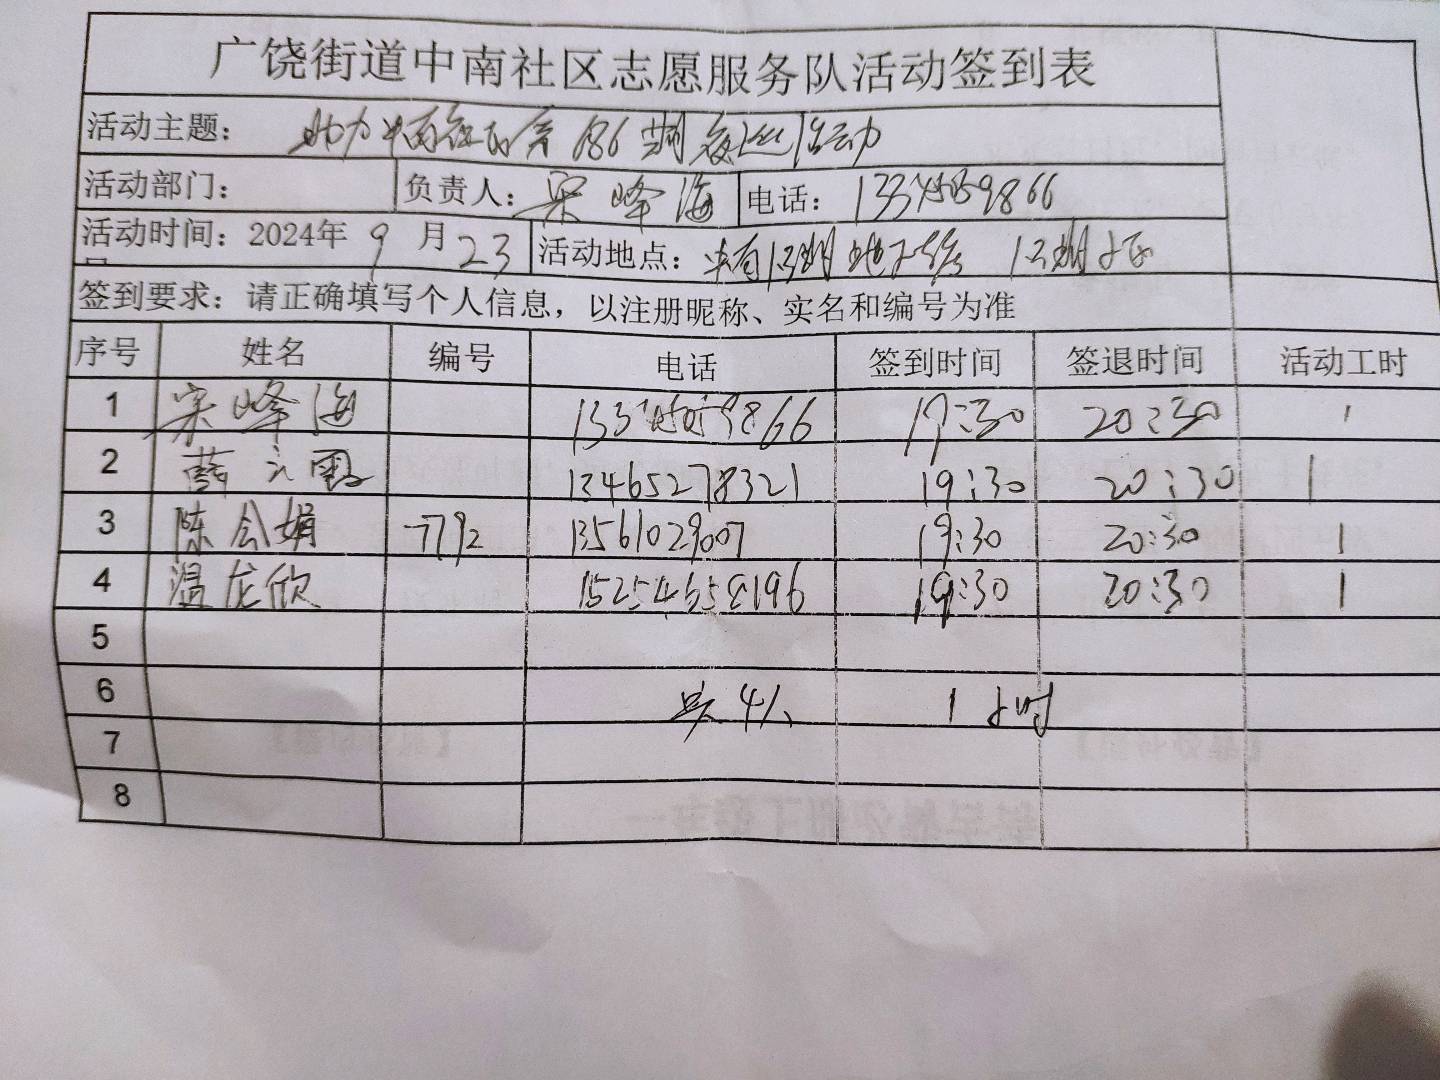 广饶街道中南社区志愿服务队活动签到表
活动主题： 助力中南社区第186期夜巡活动
活动部门： 负责人：宋峰海 电话：13345059866
活动时间：2024年9月23 活动地点：
签到要求：请正确填写个人信息，以注册昵称、实名和编号为准
序号 姓名 编号 电话 签到时间 签退时间 活动工时
1 宋峰海 19:30 20:30 1
2 13465278321 19:30 20:30 1
3 陈会娟 7792 13561029007 19:30 20:30 1
4 温龙欣 19:30 20:30 1
5
6 共4人 1小时
7
8